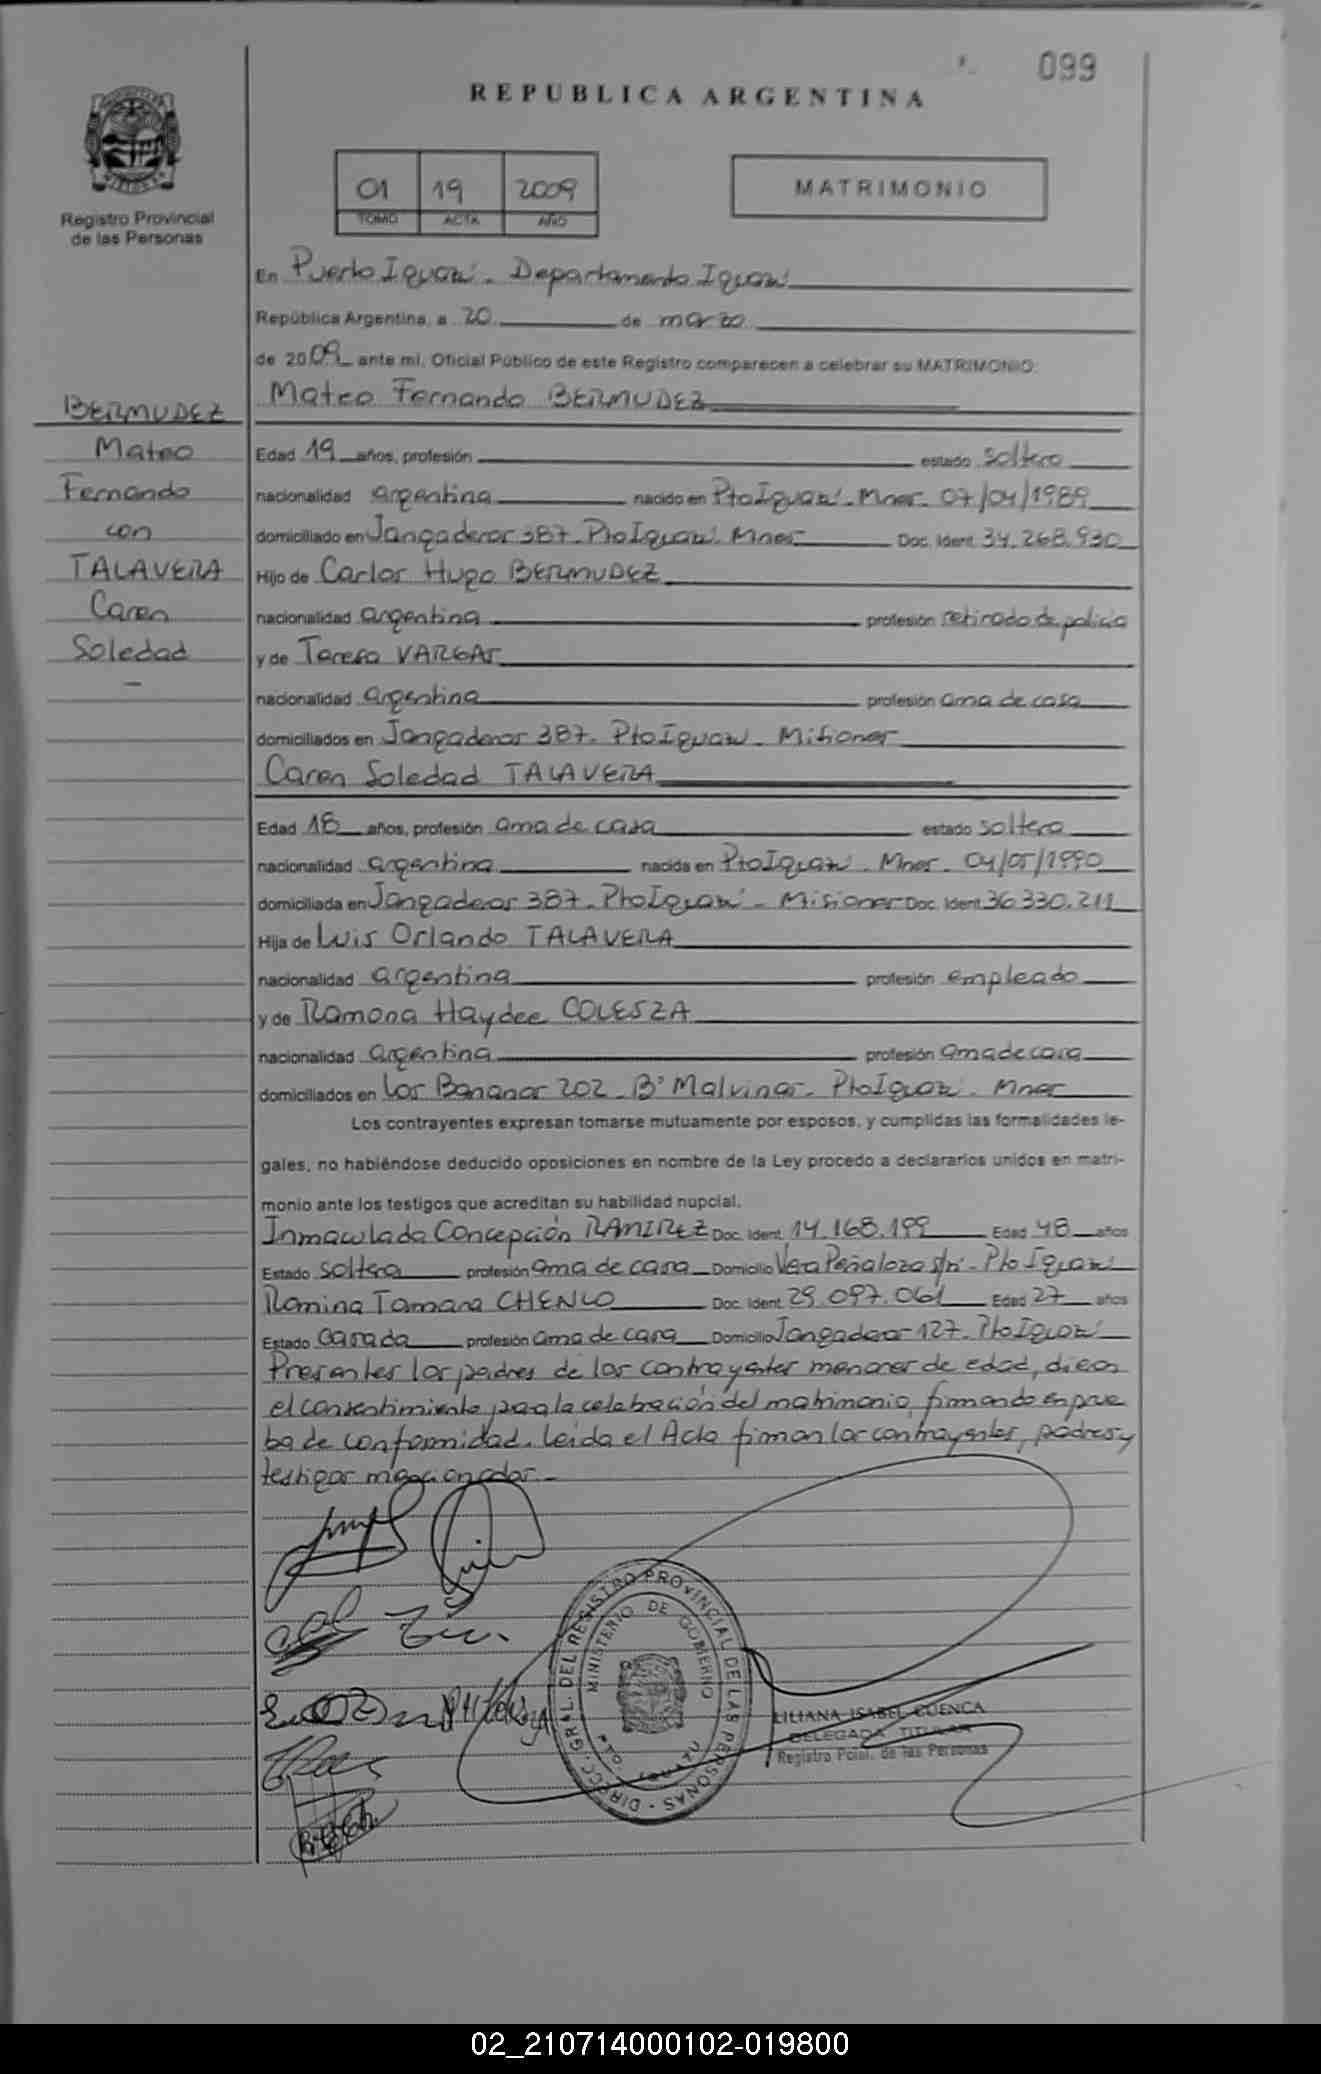 099
REPUBLICA ARGENTINA
Registro Provincial
de las Personas
01 19 2009
TOMO ACTA AÑO
MATRIMONIO
En Puerto Iguazú - Departamento Iguazú
República Argentina, a 20 de marzo
de 2009 ante mi, Oficial Público de este Registro comparecen a celebrar su MATRIMONIO:
Mateo Fernando BERMUDEZ
BERMUDEZ
Mateo
Fernando
con
TALAVERA
Caren
Soledad
-
Edad 19 años, profesión estado soltero
nacionalidad argentina nacido en Pto Iguazú - Mnes - 07/04/1989
domiciliado en Jangaderos 387 - Pto Iguazú Mnes Doc. Ident. 34.268.930
Hijo de Carlos Hugo BERMUDEZ
nacionalidad argentina profesión retirado de policia
y de Teresa VARGAS
nacionalidad argentina profesión ama de casa
domiciliados en Jangaderos 387 - Pto Iguazu - Misiones
Caren Soledad TALAVERA
Edad 18 años, profesión ama de casa estado soltera
nacionalidad argentina nacida en Pto Iguazú - Mnes - 04/05/1990
domiciliada en Jangaderos 387 - Pto Iguazú - Misiones Doc. Ident. 36.330.211
Hija de Luis Orlando TALAVERA
nacionalidad argentina profesión empleado
y de Ramona Haydee COLESZA
nacionalidad argentina profesión ama de casa
domiciliados en Los Bananos 202 - Bº Malvinas - Pto Iguazú - Mnes
Los contrayentes expresan tomarse mutuamente por esposos, y cumplidas las formalidades le-
gales, no habiéndose deducido oposiciones en nombre de la Ley procedo a declararlos unidos en matri-
monio ante los testigos que acreditan su habilidad nupcial.
Inmaculada Concepción RAMIREZ Doc. Ident. 14.168.199 Edad 48 años
Estado soltera profesión ama de casa Domicilio Vera Peñaloza s/nº - Pto Iguazu
Romina Tamara CHENLO Doc. Ident. 29.097.061 Edad 27 años
Estado casada profesión ama de casa Domicilio Jangaderos 127 - Pto Iguazú
Presentes los padres de los contrayentes menores de edad, dicen
el consentimiento para la celebración del matrimonio, firmando en prue
ba de conformidad. Leida el Acta firman los contrayentes, padres y
testigos mencionados.-
DIRECC. GRAL. DEL REGISTRO PROVINCIAL DE LAS PERSONAS
MINISTERIO DE GOBIERNO
PTO. IGUAZU
LILIANA ISABEL CUENCA
DELEGADA TITULAR
Registro Pcial. de las Personas
02_210714000102-019800